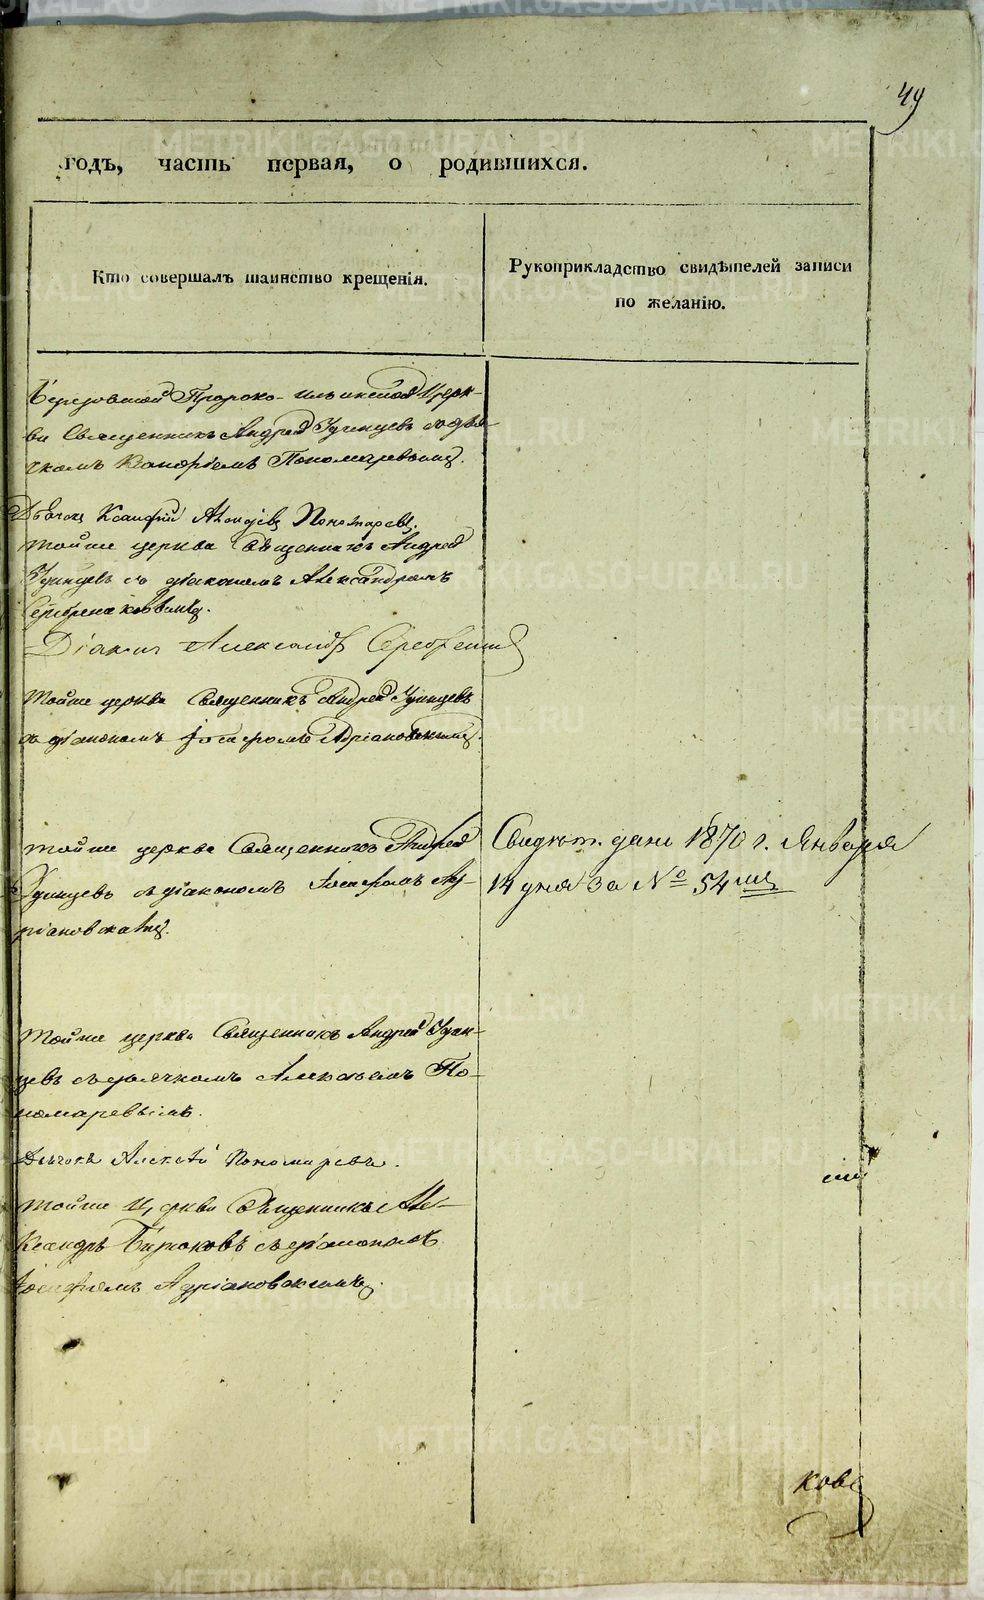 49
годъ, часть первая, о родившихся.
Кто совершалъ таинство крещенія.
Рукоприкладство свидѣтелей записи
по желанію.
Березовской Пророко-Ильинской Церк-
ви Священникъ Андрей Удинцевъ съ дья-
чкомъ Пономаревымъ.
Дьячокъ Пономаревъ.
тойже церкви Священникъ Андрей
Удинцевъ со діакономъ Александромъ
Серебренниковымъ.
Діаконъ Александръ
тойже церкви Священникъ Андрей Удинцевъ
съ діакономъ Іосифомъ Адріановскимъ.
тойже церкви Священникъ Андрей
Удинцевъ съ діакономъ Іосифомъ Ад-
ріановскимъ.
Свидѣт. дано 1870 г. Января
14 дня за № 54мъ
тойже церкви Священникъ Андрей Удин-
цевъ съ дьячкомъ Алексѣемъ По-
номаревымъ.
Дьячокъ Алексѣй Пономаревъ.
тойже Церкви Священникъ Але-
ксандръ Бирюковъ съ діакономъ
Іосифомъ Адріановскимъ.
ковъ
METRIKI.GASO-URAL.RU